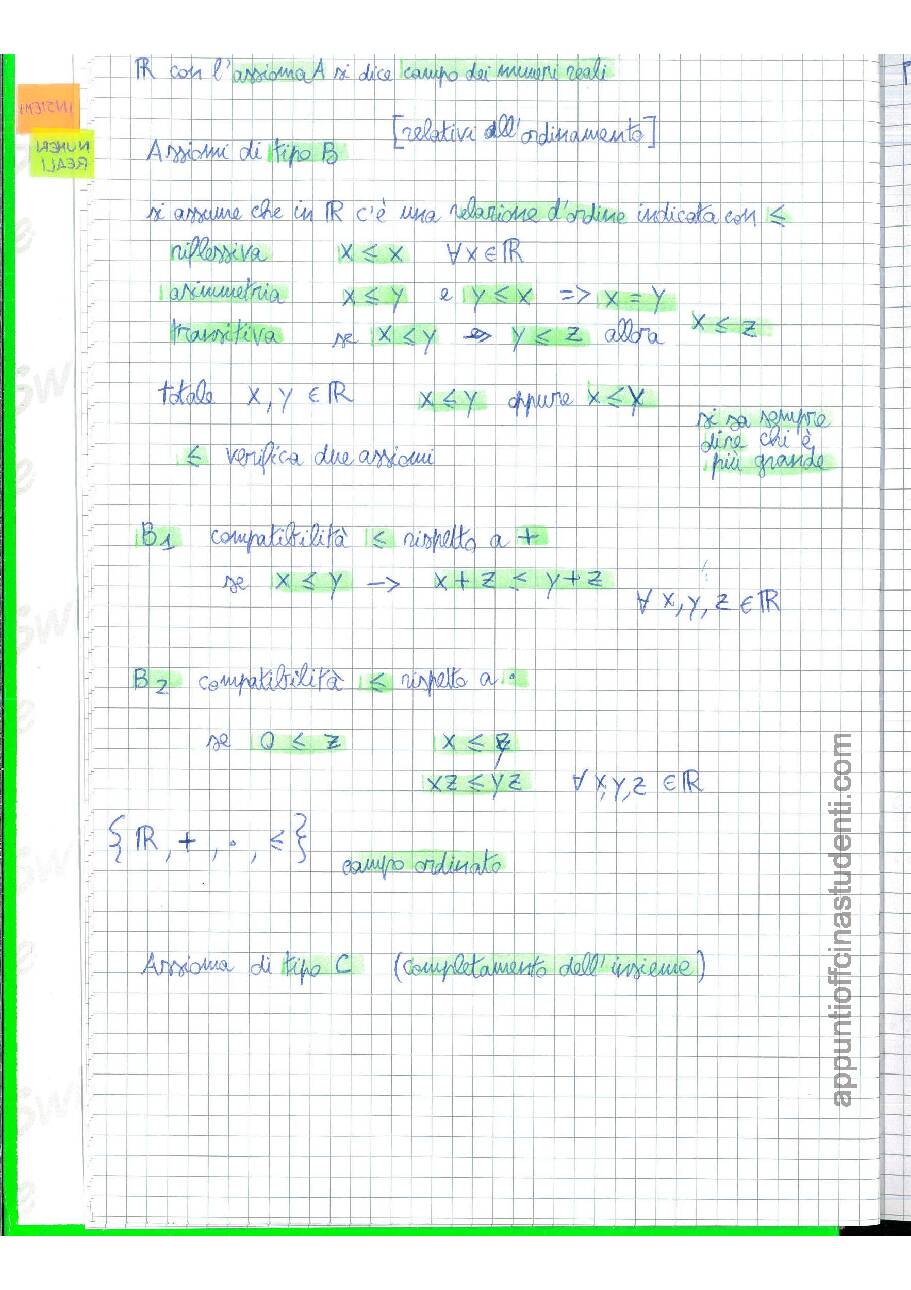 ℝ con l'assioma A si dice campo dei numeri reali
INSIEMI
NUMERI
REALI
Assiomi di tipo B [relativi all'ordinamento]
si assume che in ℝ c'è una relazione d'ordine indicata con ≤
riflessiva x ≤ x ∀x ∈ ℝ
asimmetria x ≤ y e y ≤ x => x = y
transitiva se x ≤ y => y ≤ z allora x ≤ z
totale x, y ∈ ℝ x ≤ y oppure x ≤ y
si sa sempre
dire chi è
più grande
≤ verifica due assiomi
B1 compatibilità ≤ rispetto a +
se x ≤ y –> x + z ≤ y + z
∀ x, y, z ∈ ℝ
B2 compatibilità ≤ rispetto a ·
se 0 ≤ z x ≤ y
xz ≤ yz ∀ x, y, z ∈ ℝ
{ℝ, +, ·, ≤}
campo ordinato
Assioma di tipo C (completamento dell'insieme)
appuntioffcinastudenti.com